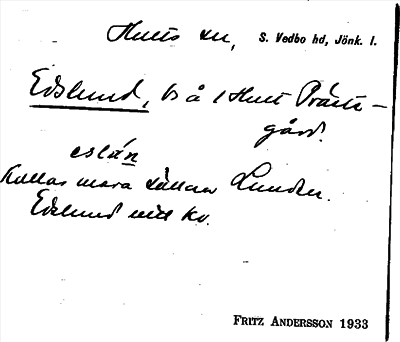 Hults sn, S. Vedbo hd, Jönk. l.
Edslund, bå i Hult Präst-
gård.
eslún
Kallas mera sällan Lunden.
Edslund vill kv.
FRITZ ANDERSSON 1933